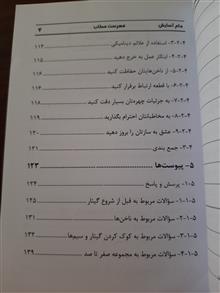 جام آسایش فهرست مطالب ۳
۳-۲-۴- استفاده از علائم دینامیکی ۱۱۴
۴-۲-۴- ابتکار عمل به خرج دهید ۱۱۶
۵-۲-۴- از ناخن‌هایتان حفاظت کنید ۱۱۶
۶-۲-۴- با قطعه ارتباط برقرار کنید ۱۱۷
۷-۲-۴- به جزئیات چهره‌تان بسیار دقت کنید ۱۱۸
۸-۲-۴- به مخاطبانتان احترام بگذارید ۱۱۹
۹-۲-۴- عشق به سازتان را بروز دهید ۱۲۰
۳-۴- جمع بندی ۱۲۱
۵- پیوست‌ها ۱۲۳
۱-۵- پرسش و پاسخ ۱۲۴
۱-۱-۵- سؤالات مربوط به قبل از شروع گیتار ۱۲۵
۲-۱-۵- سؤالات مربوط به ناخن‌ها ۱۳۱
۳-۱-۵- سؤالات مربوط به کوک کردن گیتار و سیم‌ها ۱۳۳
۴-۱-۵- سؤالات مربوط به مجموعه صفر تا صد ۱۳۹